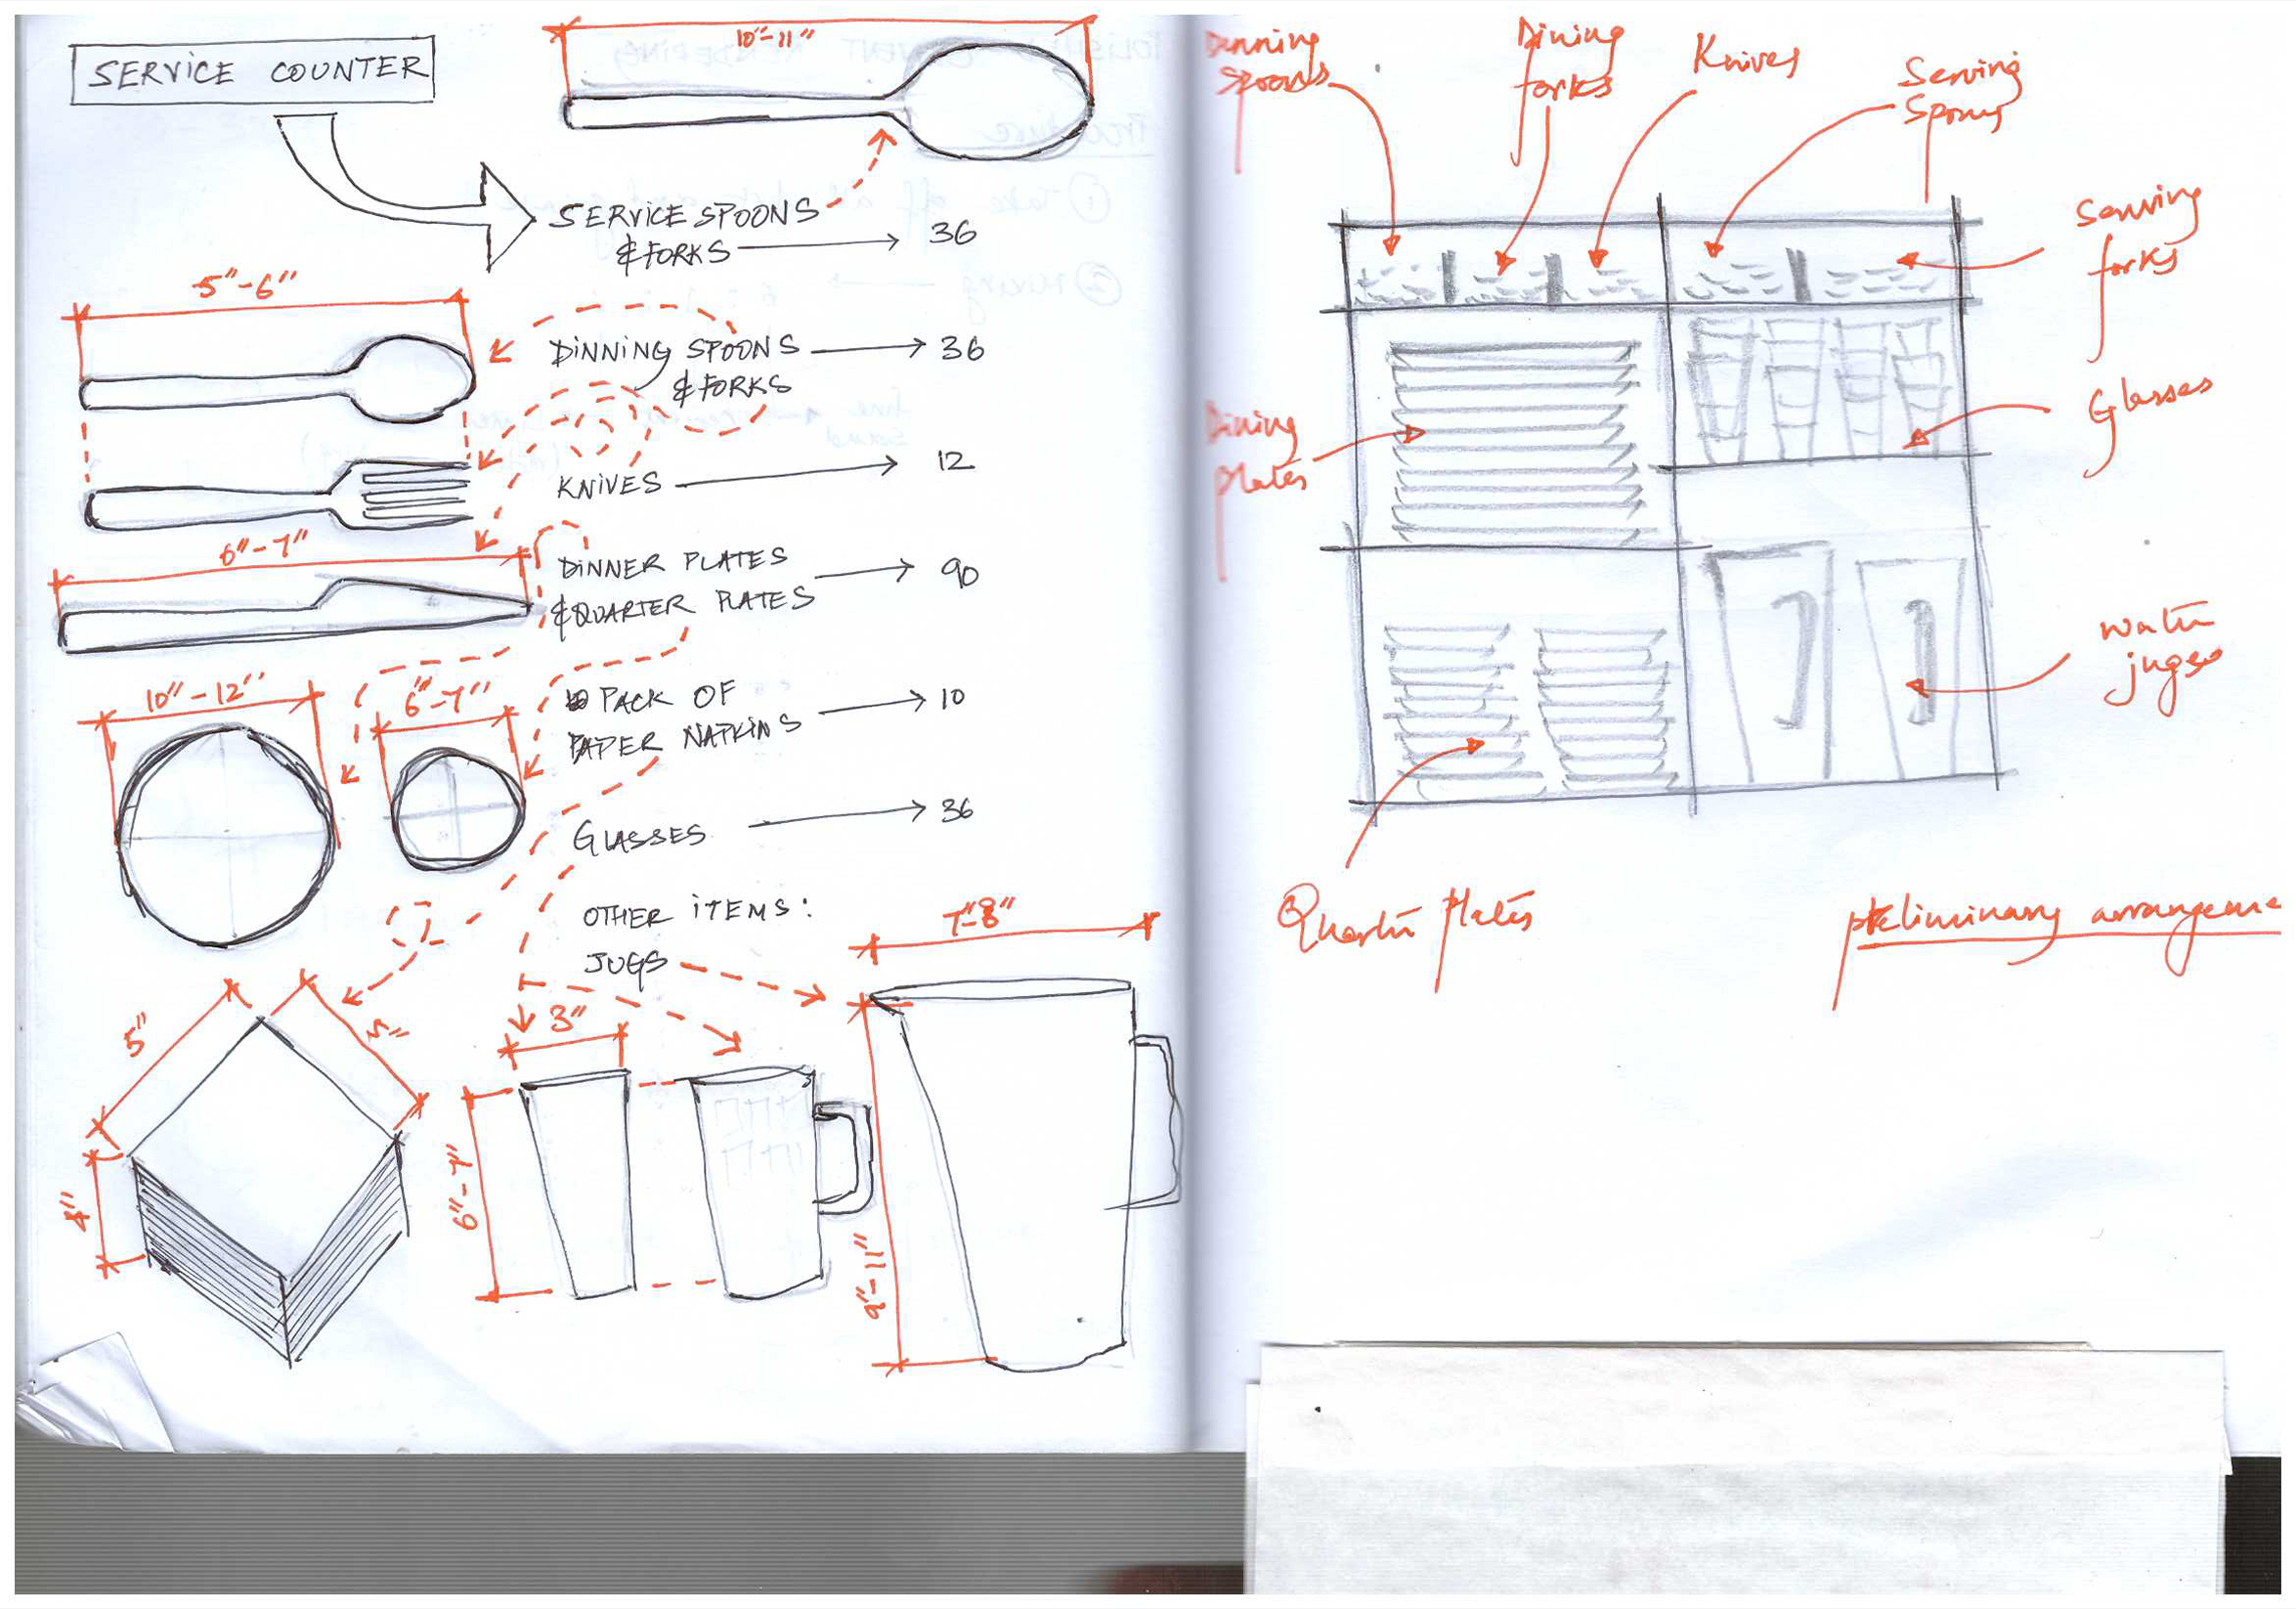 SERVICE COUNTER
10"-11"
SERVICE SPOONS
& FORKS 36
5"-6"
DINNING SPOONS 36
& FORKS
KNIVES 12
6"-7"
DINNER PLATES
& QUARTER PLATES 90
10"-12"
6"-7"
PACK OF
PAPER NAPKINS 10
GLASSES 36
OTHER ITEMS:
JUGS
7"-8"
5"
5"
4"
3"
6"-7"
9"-11"
Dinning
spoons
Dining
forks
Knives
Serving
Spoons
Serving
forks
Dining
plates
Glasses
water
jugs
Quarter plates
preliminary arrangeme